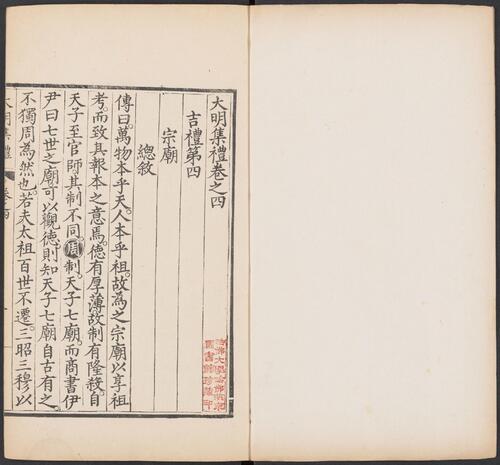 大明集禮卷之四
吉禮第四
宗廟
總敘
傳曰萬物本乎天人本乎祖故為之宗廟以享祖
考而致其報本之意焉德有厚薄故制有隆殺自
天子至官師其制不同周制天子七廟而商書伊
尹曰七世之廟可以觀德則知天子七廟自古有之
不獨周為然也若夫太祖百世不遷三昭三穆以
大明集禮 卷四